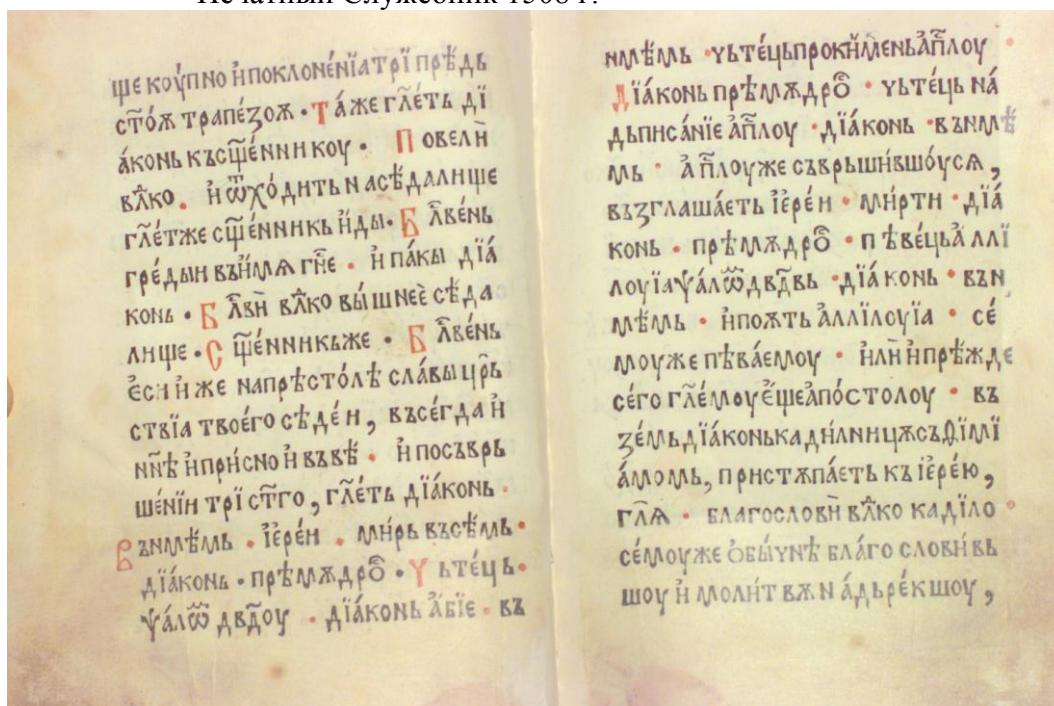 Печатный Служебник 1508 г.
ще кѹ́пно и҆поклоне́нїа трї прѣ́дь
ст҃о́ѫ трапе́зоѫ · Та́же гл҃еть дї
а́конь къ сщ҃е́нникоу · Повели҆
влⷣко. и҆ ѿхо́дить на сѣ́далище
гл҃етже сщ҃е́нникь и҆́ды · Бл҃ве́нь
гре́дыи въ и҆́мѧ гн҃е . и҆ па́кы дїа́
конь · Бл҃ви҆ влⷣко вы́шнее сѣ́да
лище · Сщ҃е́нникьже · Бл҃ве́нь
є҆си и҆́же на прѣсто́лѣ сла́вы цр҃ь
ствїа твое́го сѣде́и, въсе́гда и҆
нн҃ѣ и҆при́сно и҆ въвѣ́ . и҆ посъврь
ше́нїи трї ст҃го, гл҃еть дїа́конь ·
Вънмѣ́мь . їере́и . ми́рь въсѣ́мь ·
дїа́конь · прѣмѫдро · Чьте́ць ·
ѱало҆́ѿ дв҃доу · дїа́конь а҆́бїе · въ
нмѣ́мь · чьте́ць проки́мень а҆пⷭлоу ·
Дїа́конь прѣмѫдро · чьте́ць на́
дьписа́нїе а҆пⷭлоу · дїа́конь · вънмѣ́
мь · а҆пⷭлоуже съврьши́вшоусѧ,
възглаша́еть їере́и · ми́рти · дїа́
конь · прѣмѫдро · пѣве́ць а҆ллї
лоуїа ѱало҆́ѿ дв҃двь · дїа́конь · вън
мѣ́мь · и҆поѫть а҆ллїлоуїа · се́
моуже пѣва́емоу · и҆ли и҆прѣ́жде
се́го гл҃е́моу є҆́ще а҆по́столоу · въ
зе́мь дїа́конь кади́лницѫ съ ѳїмї
а́момь, пристѫпа́еть къ їере́ю,
гл҃ѧ · благослови҆ влⷣко кади́ло ·
се́моуже ѻ҆бы́чнѣ благослови́вь
шоу и҆ моли́твѫ на́дьре́кшоу,